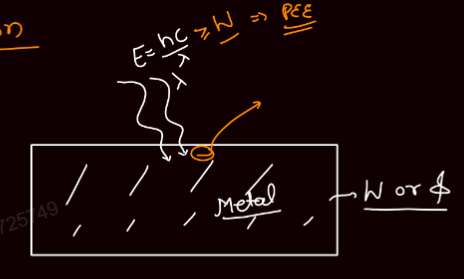 E = hc/λ ≥ W ⇒ PEE
λ
Metal → W or ϕ
725749